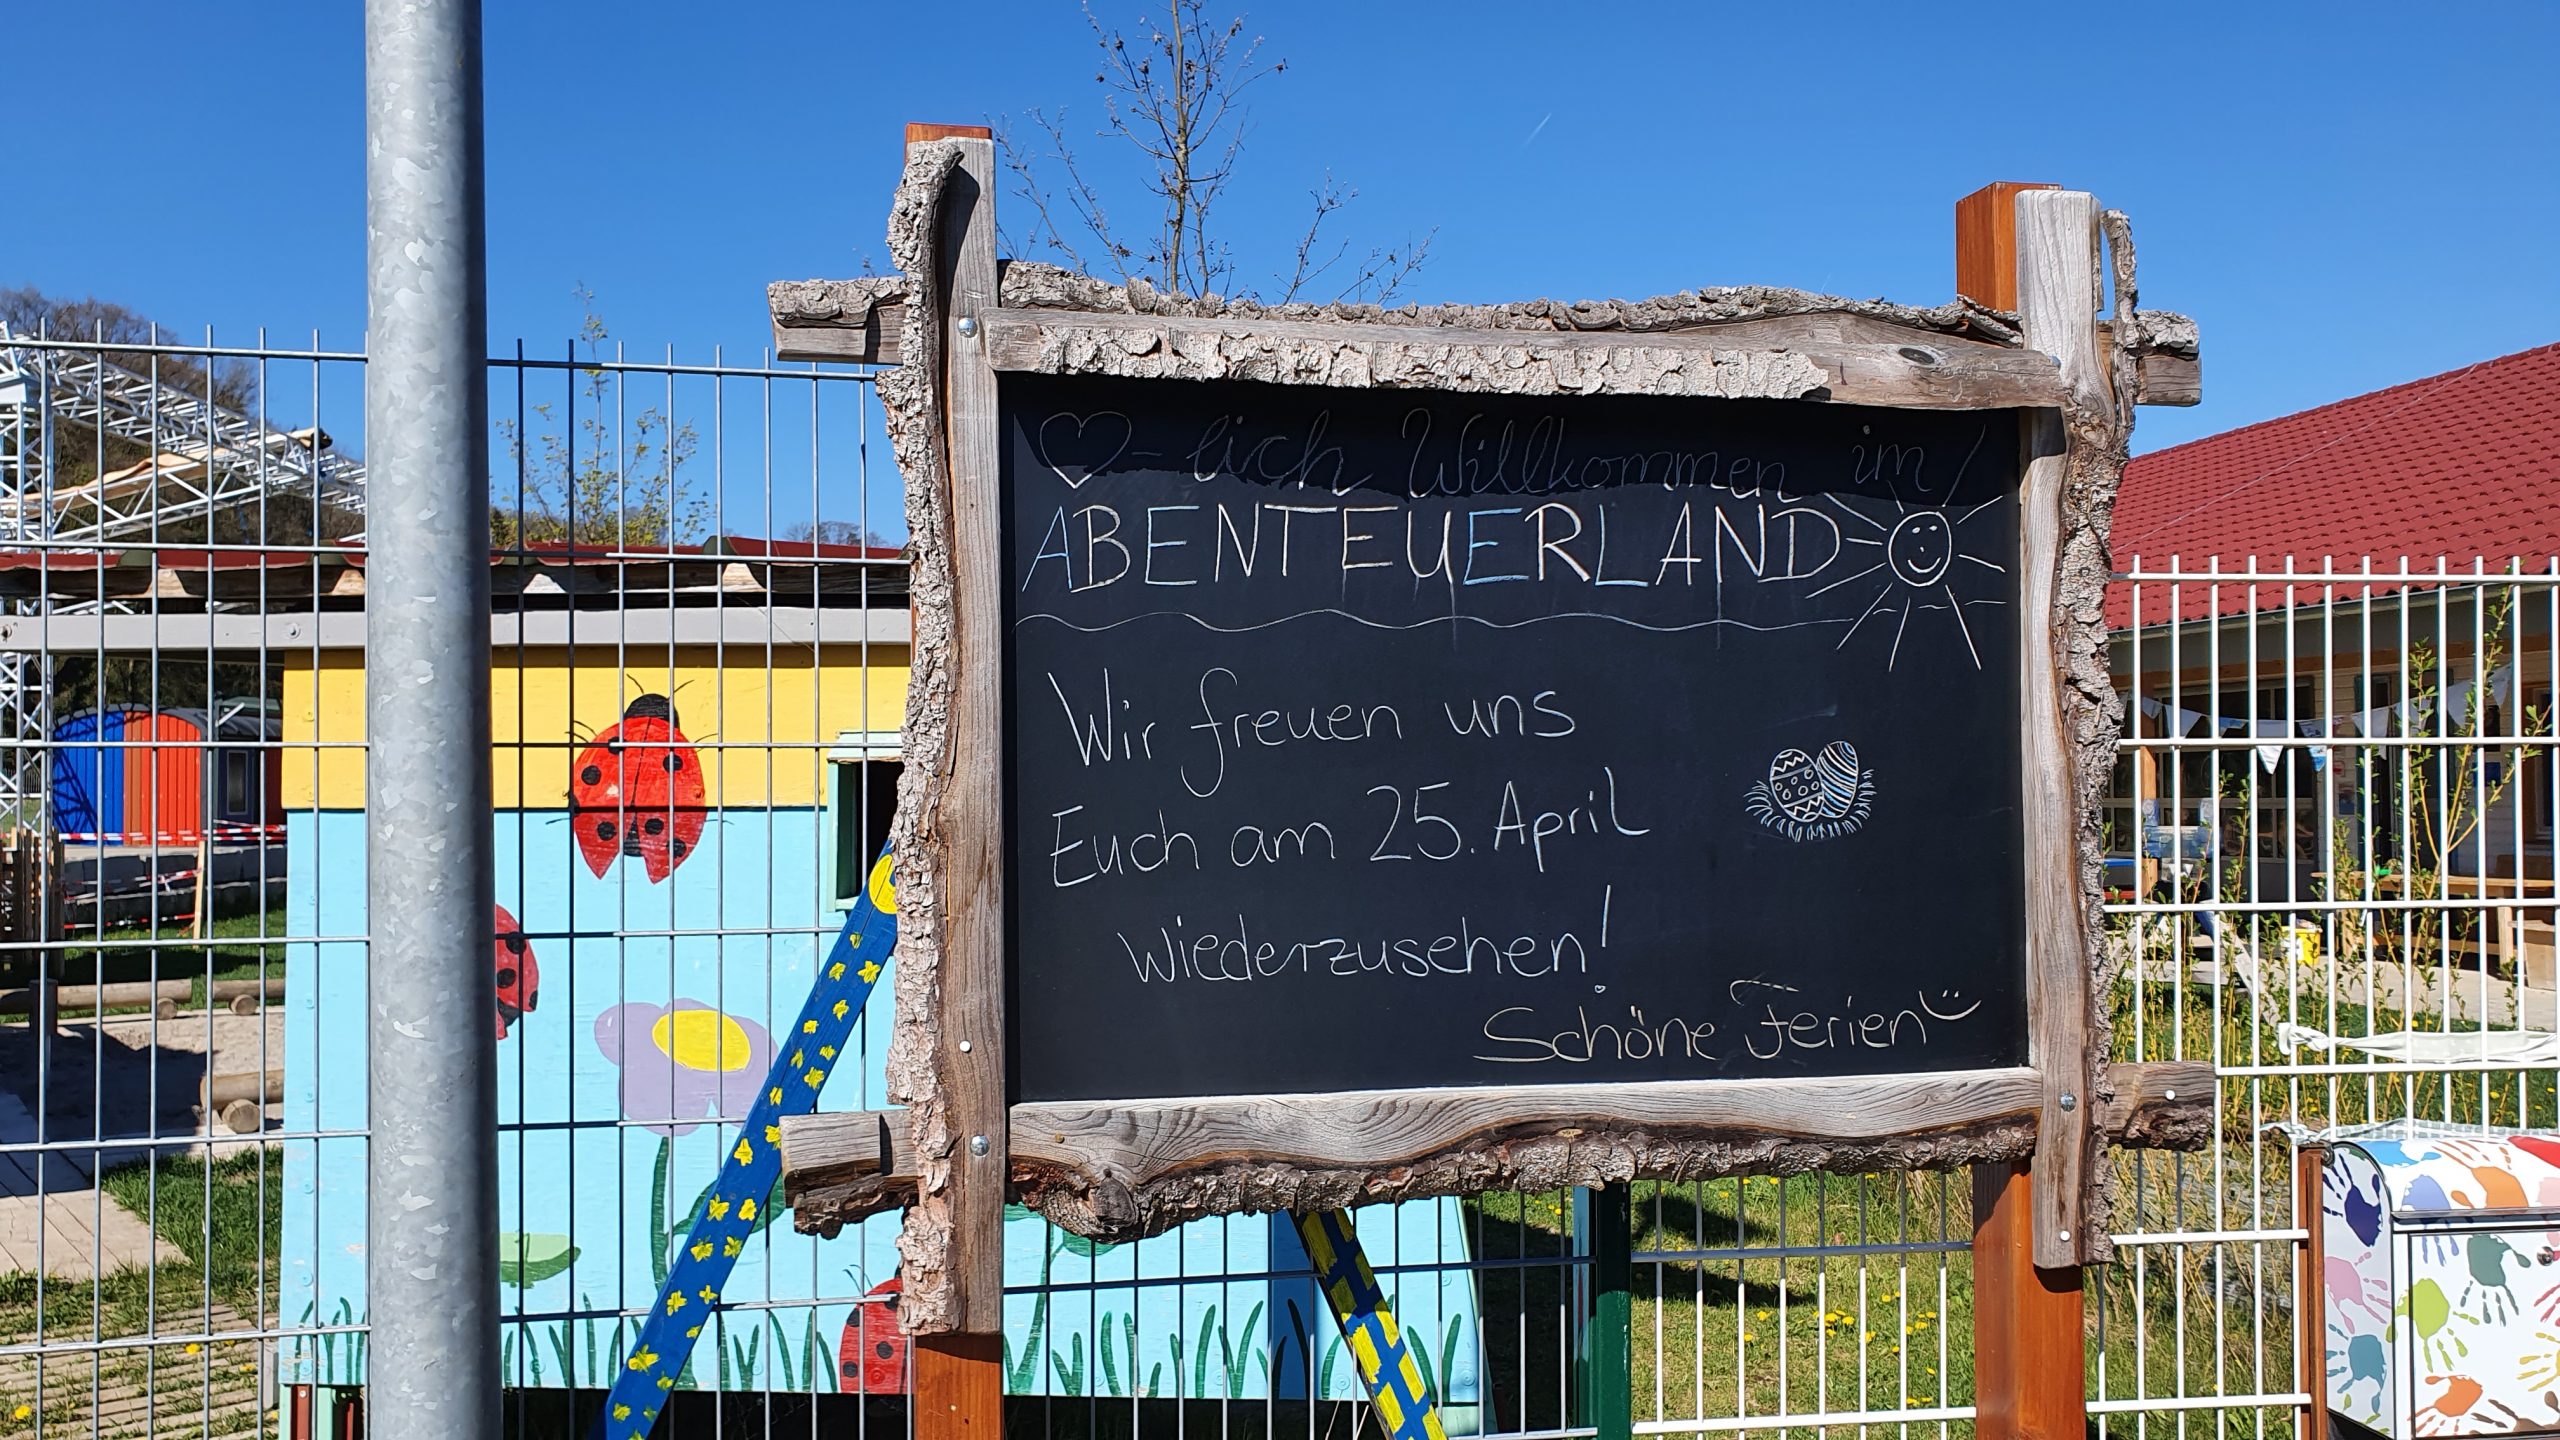 ♡-lich Willkommen im
ABENTEUERLAND
Wir freuen uns
Euch am 25. April
wiederzusehen!
Schöne Ferien